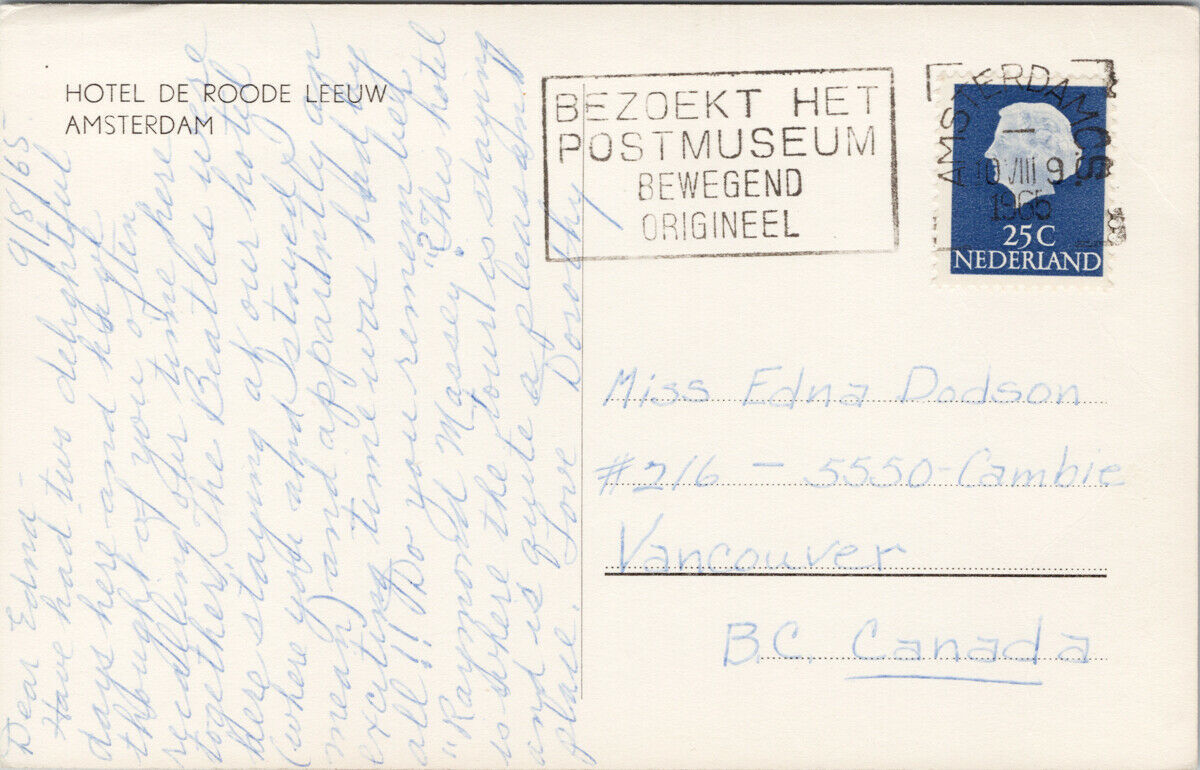 HOTEL DE ROODE LEEUW
AMSTERDAM
9/8/65
Dear Edna -
Have had two delightful
days here and have
thought of you often
recalling our time here
together. The Beatles were
here staying at our hotel
(where you and I stayed I
mean) and apparently an
exciting time was had by
all!! Do you remember
"Raymond Massey"? This hotel
is where the tour is staying
and is quite a pleasant
place. Love Dorothy
BEZOEKT HET
POSTMUSEUM
BEWEGEND
ORIGINEEL
AMSTERDAM C.S.
10 VIII 9
1965
25 C
NEDERLAND
Miss Edna Dodson
#216 - 5550-Cambie
Vancouver
B.C. Canada